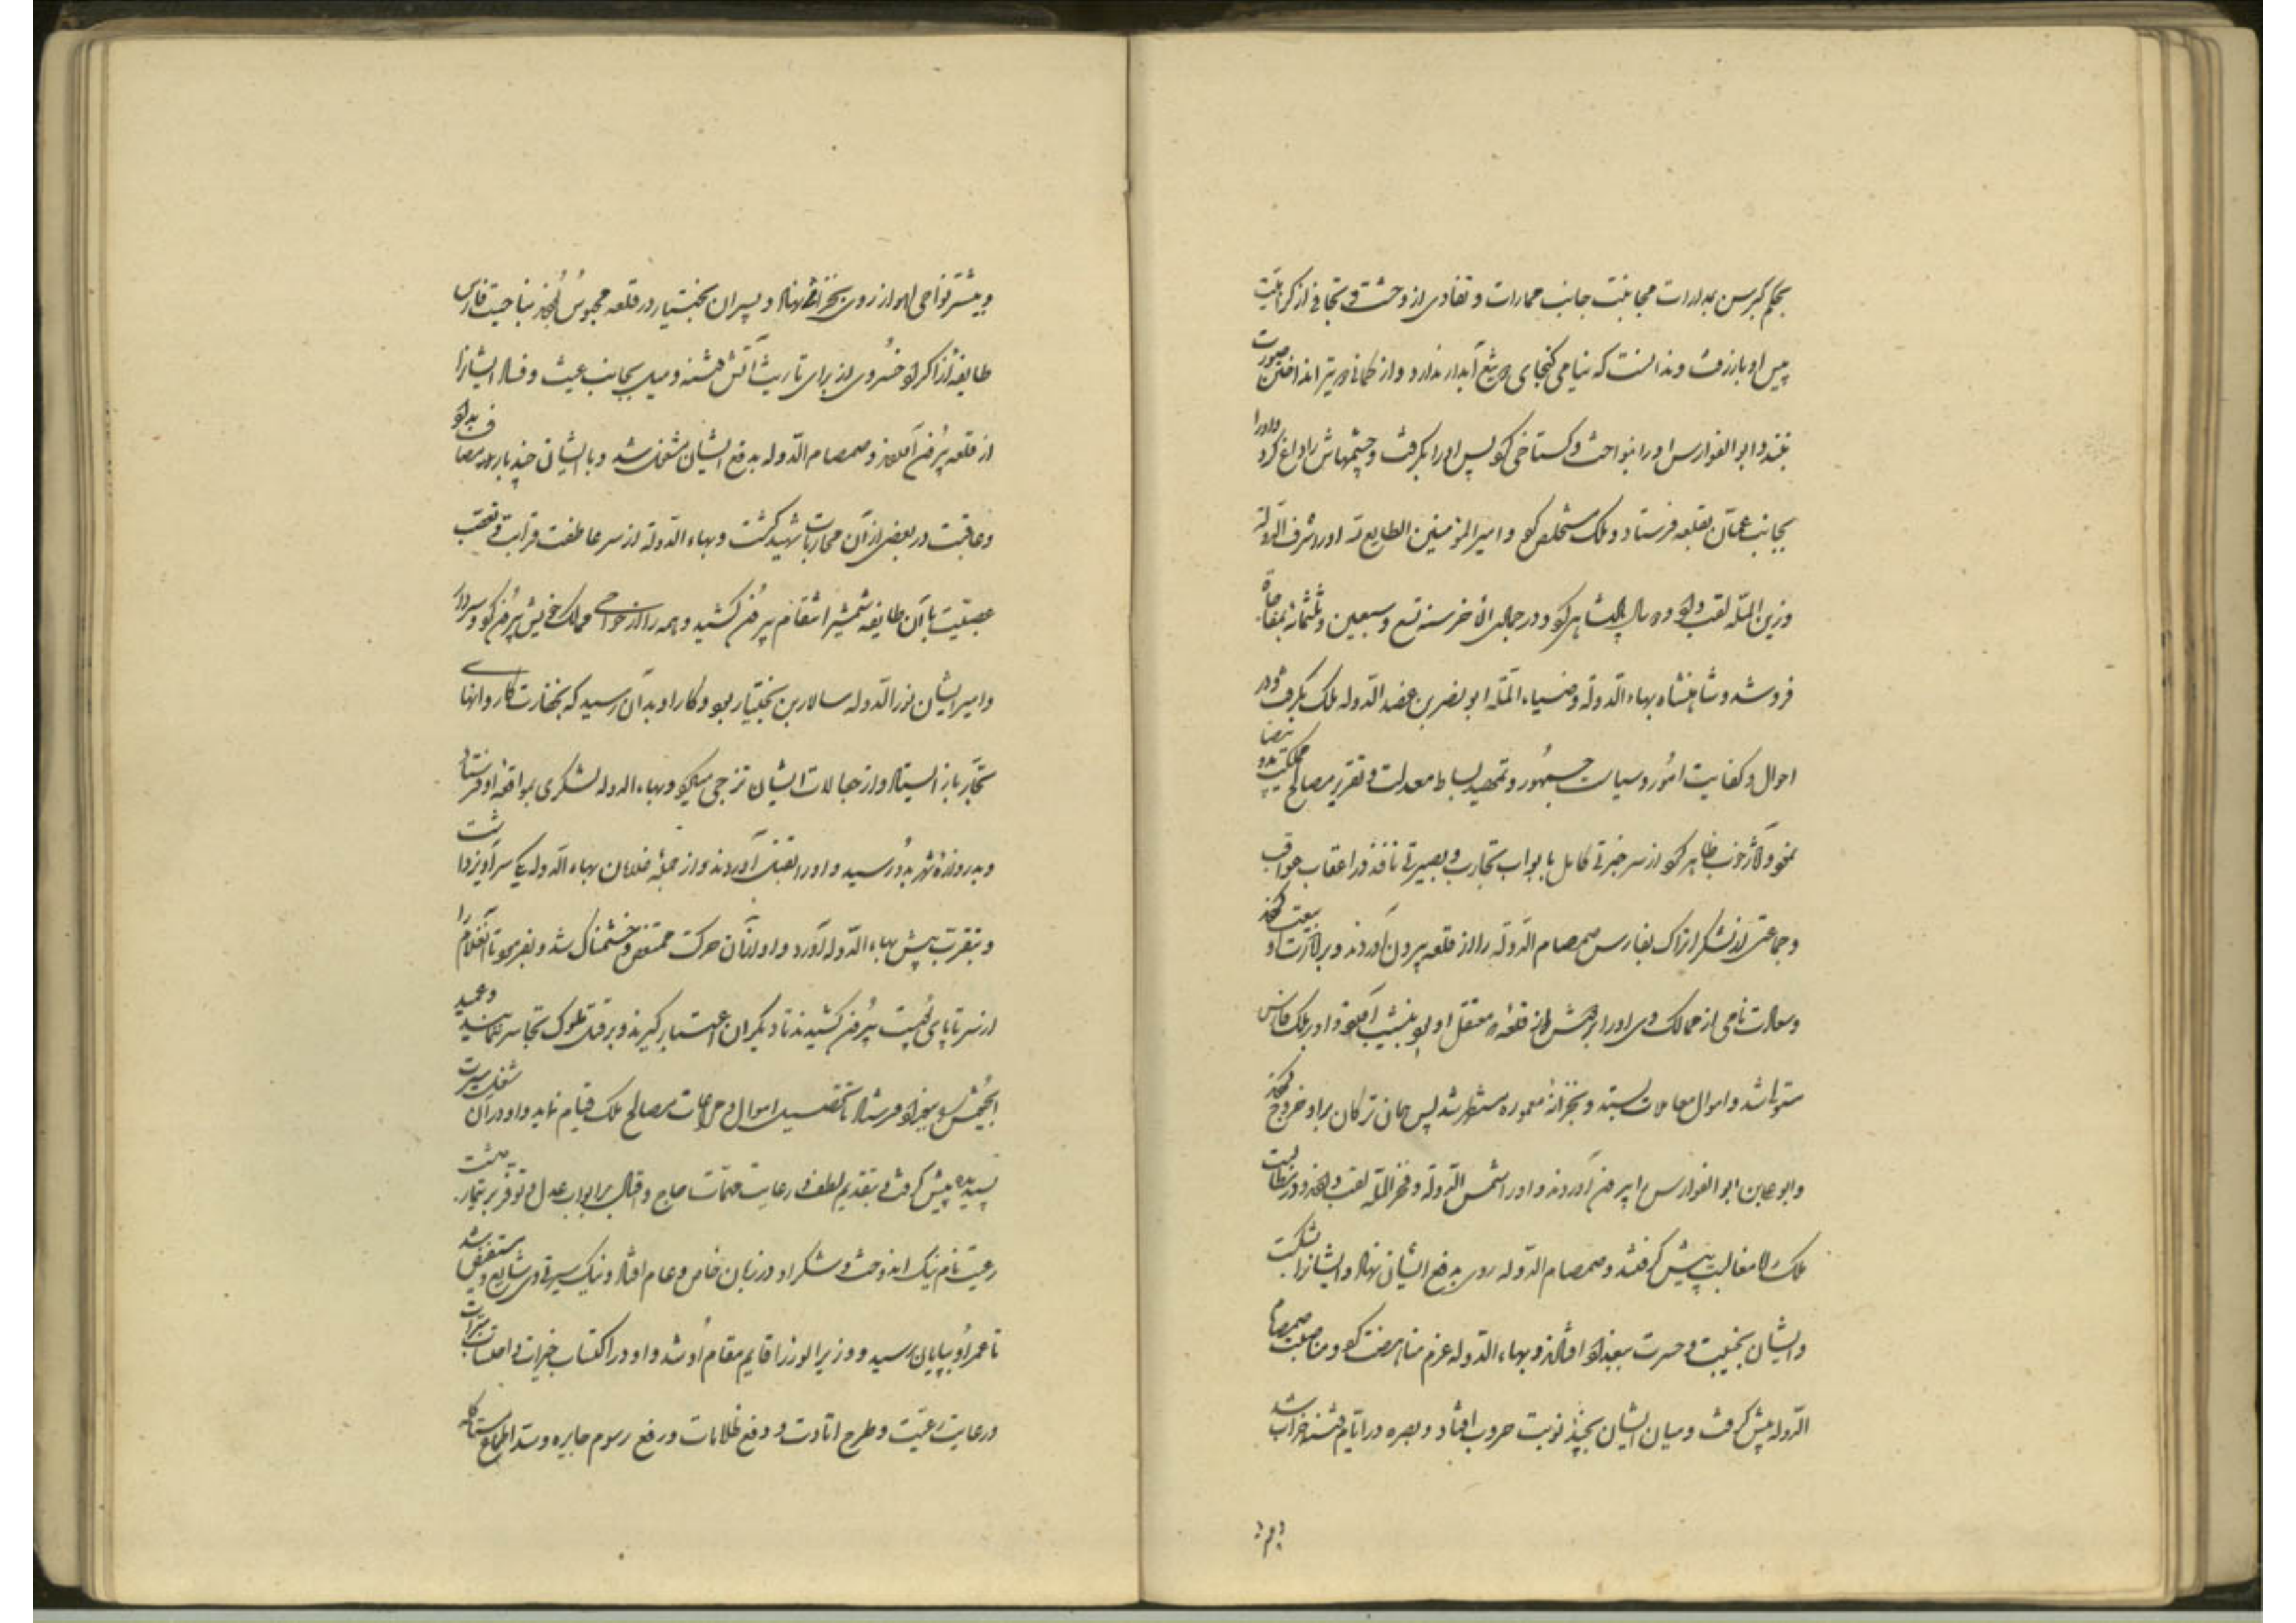 بحکم کبر سن بمدارات مجانبت جانب ممارات و تفادی از وحشت و تجافی از کراهیت
پیش او باز رفت و ندانست که نیامی گنجای دو تیغ آبدار ندارد و از کمانی دو تیر انداختن صورت
نبندد ابو الفوارس او را بنواخت و گستاخی کرد پس او را بگرفت و چشمهاش را داغ کرد و او را
بجانب عمان بقلعه فرستاد و ملک مستخلص کرد و امیر المؤمنین الطایع لله او را شرف الدوله
و زین المله لقب داد و دو سال پادشاهی کرد و در جمادی الآخر سنه تسع و سبعین و ثلثمائه بمفاجاة
فرو شد و شاهنشاه بهاء الدوله و ضیاء المله ابو نصر بن عضد الدوله ملک بگرفت و در
احوال و کفایت امور و سیاست جمهور و تمهید بساط معدلت و تقریر مصالح مملکت ید بیضا
بنمود و آثار خوب ظاهر کرد از سر خبرتی کامل بابواب تجارب و بصیرتی نافذ در اعقاب عواقب
و جماعتی از لشکر اتراک بفارس صمصام الدوله را از قلعه بیرون آوردند و بر امارت او بیعت کردند
و سعادت ناحی از ممالک وی او را بر دوش از قلعه که معتقل او بود بنشیب آورد و او بر ملک فارس
مستولی شد و اموال معاملات بستد و بخزانه معموره مستظهر شد پس همان ترکان بر او خروج کردند
و ابو علی بن ابو الفوارس را بیرون آوردند و او را شمس الدوله و فخر المله لقب دادند و در مطالبت
ملک راه مغالبت پیش گرفتند و صمصام الدوله روی بدفع ایشان نهاد و ایشانرا بشکست
و ایشان بخیبت و حسرت ببغداد افتادند و بهاء الدوله عزم مناهضت کرد و مناصبت صمصام
الدوله پیش گرفت و میان ایشان بچند نوبت حروب افتاد و بصره در ایام فتنه خراب شد
و بیشتر نواحی اهواز روی بخرابی نهاد و پسران بختیار در قلعه محبوس بودند بناحیت فارس
طایفه از اکراد خسروی از برای تاریث آتش فتنه و میل بجانب عیث و فساد ایشانرا
از قلعه بیرون آوردند و صمصام الدوله بدفع ایشان مشغول شد و با ایشان چند بار مصاف بداد
و عاقبت در بعضی از آن محاربات شهید گشت و بهاء الدوله از سر عاطفت قرابت و تعصب
عصبیت با آن طایفه شمشیر انتقام بیرون کشید و همه را از نواحی ممالک خویش بیرون کرد و سردار
و امیر ایشان نور الدوله سالار بن بختیار بود و کار او بدان رسید که بخفارت کاروانهای
تجار باز ایستاد و از جبالات ایشان تزجی میکرد و بهاء الدوله لشکری بمواقفه او فرستاد
و بدروازه شهر بدو رسید و او را بقتل آوردند و از جمله غلامان بهاء الدوله یکی سر او برداشت
و بتقرب پیش بهاء الدوله آورد و او از آن حرکت ممتعض و خشمناک شد و بفرمود تا آن غلام را
از سر تا پای پوست بیرون کشیدند تا دیگران اعتبار گیرند و بر قتل ملوک تجاسر ننمایند و عمید
الجیوش را ببغداد فرستاد تا بتحصیل اموال و مراعات مصالح ملک قیام نماید و او در آن شغل سیرت
پسندیده پیش گرفت و بتقدیم لطف و رعایت مهمات حاج و اقبال بر ابواب عدل و توفر بر تیمار داشت
رعیت نام نیک اندوخت و شکر او در زبان خاص و عام افتاد و نیک سیرتی وی شایع و مستفیض شد
تا عمر او بپایان رسید و وزیر الوزرا قایم مقام او شد و او در اکتساب خیرات و اصطناع مبرات
و رعایت رعیت و طرح اتاوت و دفع ظلامات و رفع رسوم جایره و سد اطماع مستأکله